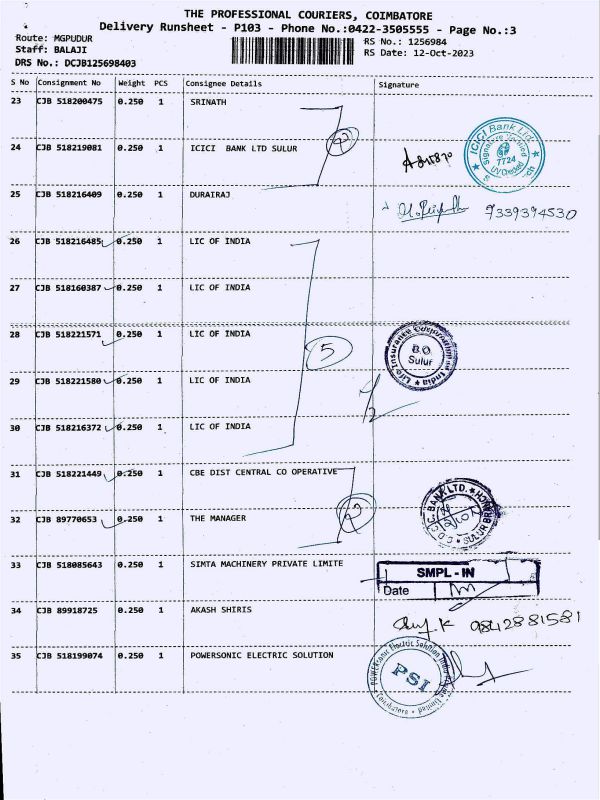 THE PROFESSIONAL COURIERS, COIMBATORE
Delivery Runsheet - P103 - Phone No.:0422-3505555 - Page No.:3
Route: MGPUDUR RS No.: 1256984
Staff: BALAJI RS Date: 12-Oct-2023
DRS No.: DCJB125698403
S No Consignment No Weight PCS Consignee Details Signature
23 CJB 518200475 0.250 1 SRINATH
24 CJB 518219081 0.250 1 ICICI BANK LTD SULUR
2
ICICI Bank Ltd.
Signature Verified
7724
UV Checked
25 CJB 518216409 0.250 1 DURAIRAJ
9339394530
26 CJB 518216485 0.250 1 LIC OF INDIA
27 CJB 518160387 0.250 1 LIC OF INDIA
28 CJB 518221571 0.250 1 LIC OF INDIA
5
Life Insurance Corporation of India
B.O.
Sulur
29 CJB 518221580 0.250 1 LIC OF INDIA
30 CJB 518216372 0.250 1 LIC OF INDIA
31 CJB 518221449 0.250 1 CBE DIST CENTRAL CO OPERATIVE
32 CJB 89770653 0.250 1 THE MANAGER
2
C.D.C.C. BANK LTD. SULUR BRANCH
33 CJB 518085643 0.250 1 SIMTA MACHINERY PRIVATE LIMITE
SMPL - IN
Date
34 CJB 89918725 0.250 1 AKASH SHIRIS
9842881581
35 CJB 518199074 0.250 1 POWERSONIC ELECTRIC SOLUTION
PSI